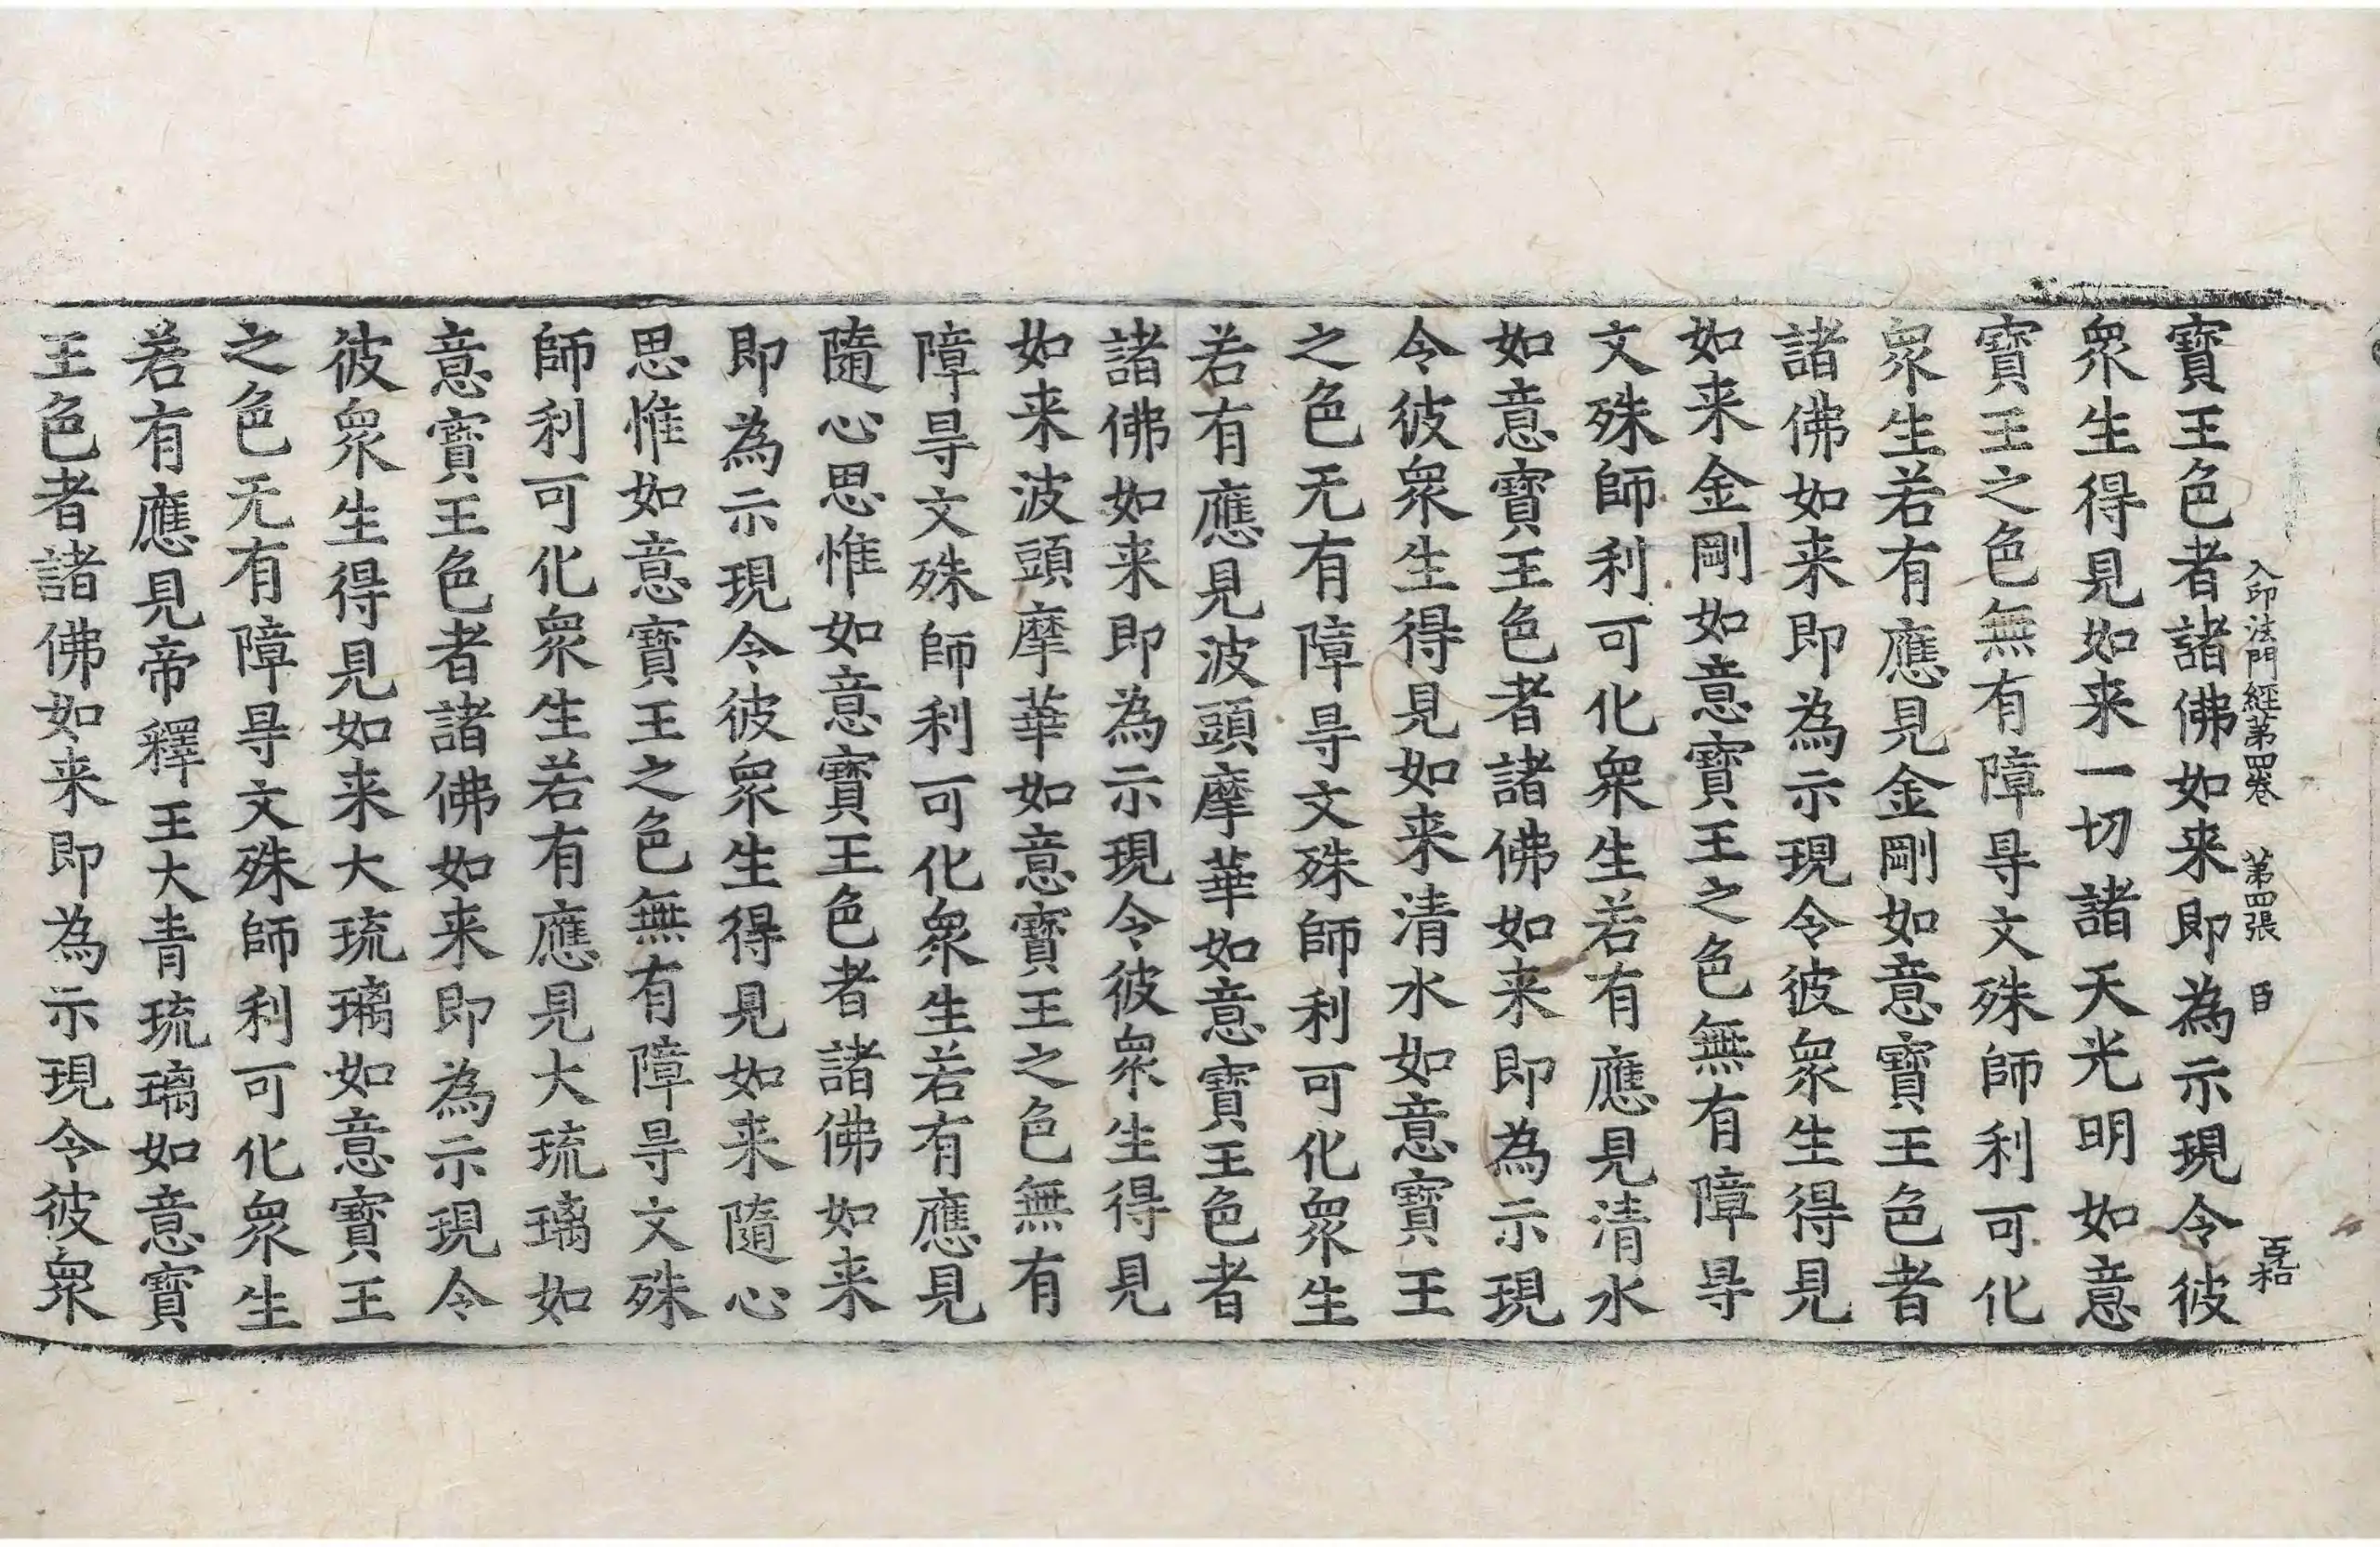 入印法門經第四卷 第四張 臣
寶王色者諸佛如来即為示現令彼
衆生得見如来一切諸天光明如意
寶王之色無有障㝵文殊師利可化
衆生若有應見金剛如意寶王色者
諸佛如来即為示現令彼衆生得見
如来金剛如意寶王之色無有障㝵
文殊師利可化衆生若有應見清水
如意寶王色者諸佛如来即為示現
令彼衆生得見如来清水如意寶王
之色无有障㝵文殊師利可化衆生
若有應見波頭摩華如意寶王色者
諸佛如来即為示現令彼衆生得見
如来波頭摩華如意寶王之色無有
障㝵文殊師利可化衆生若有應見
隨心思惟如意寶王色者諸佛如来
即為示現令彼衆生得見如来隨心
思惟如意寶王之色無有障㝵文殊
師利可化衆生若有應見大琉璃如
意寶王色者諸佛如来即為示現令
彼衆生得見如来大琉璃如意寶王
之色无有障㝵文殊師利可化衆生
若有應見帝釋王大青琉璃如意寶
王色者諸佛如来即為示現令彼衆